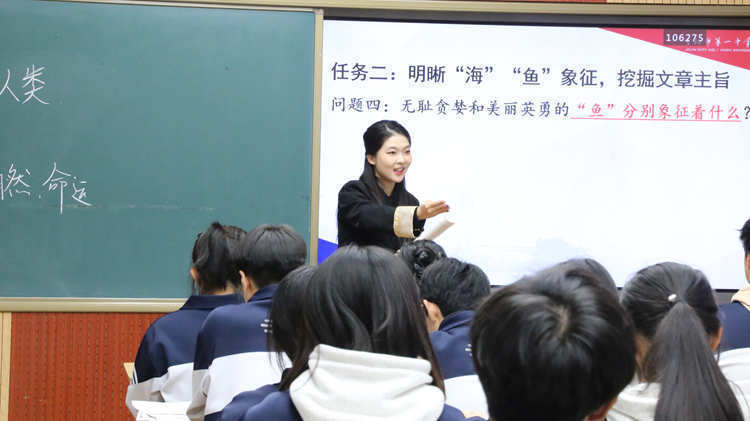 人类
然、命运
106275
第一中
任务二：明晰“海”“鱼”象征，挖掘文章主旨
问题四：无耻贪婪和美丽英勇的“鱼”分别象征着什么？